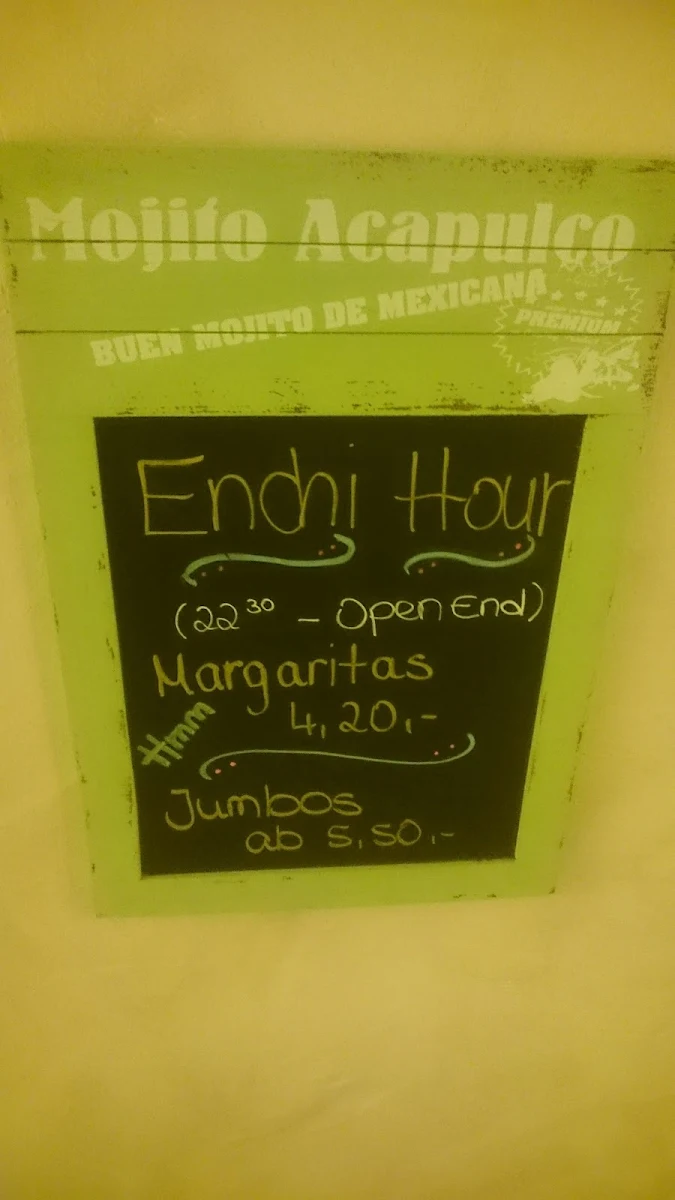 Mojito Acapulco
BUEN MOJITO DE MEXICANA
PREMIUM
Enchi Hour
(22³⁰ – Open End)
Margaritas
4,20,-
Hmm
Jumbos
ab 5,50,-